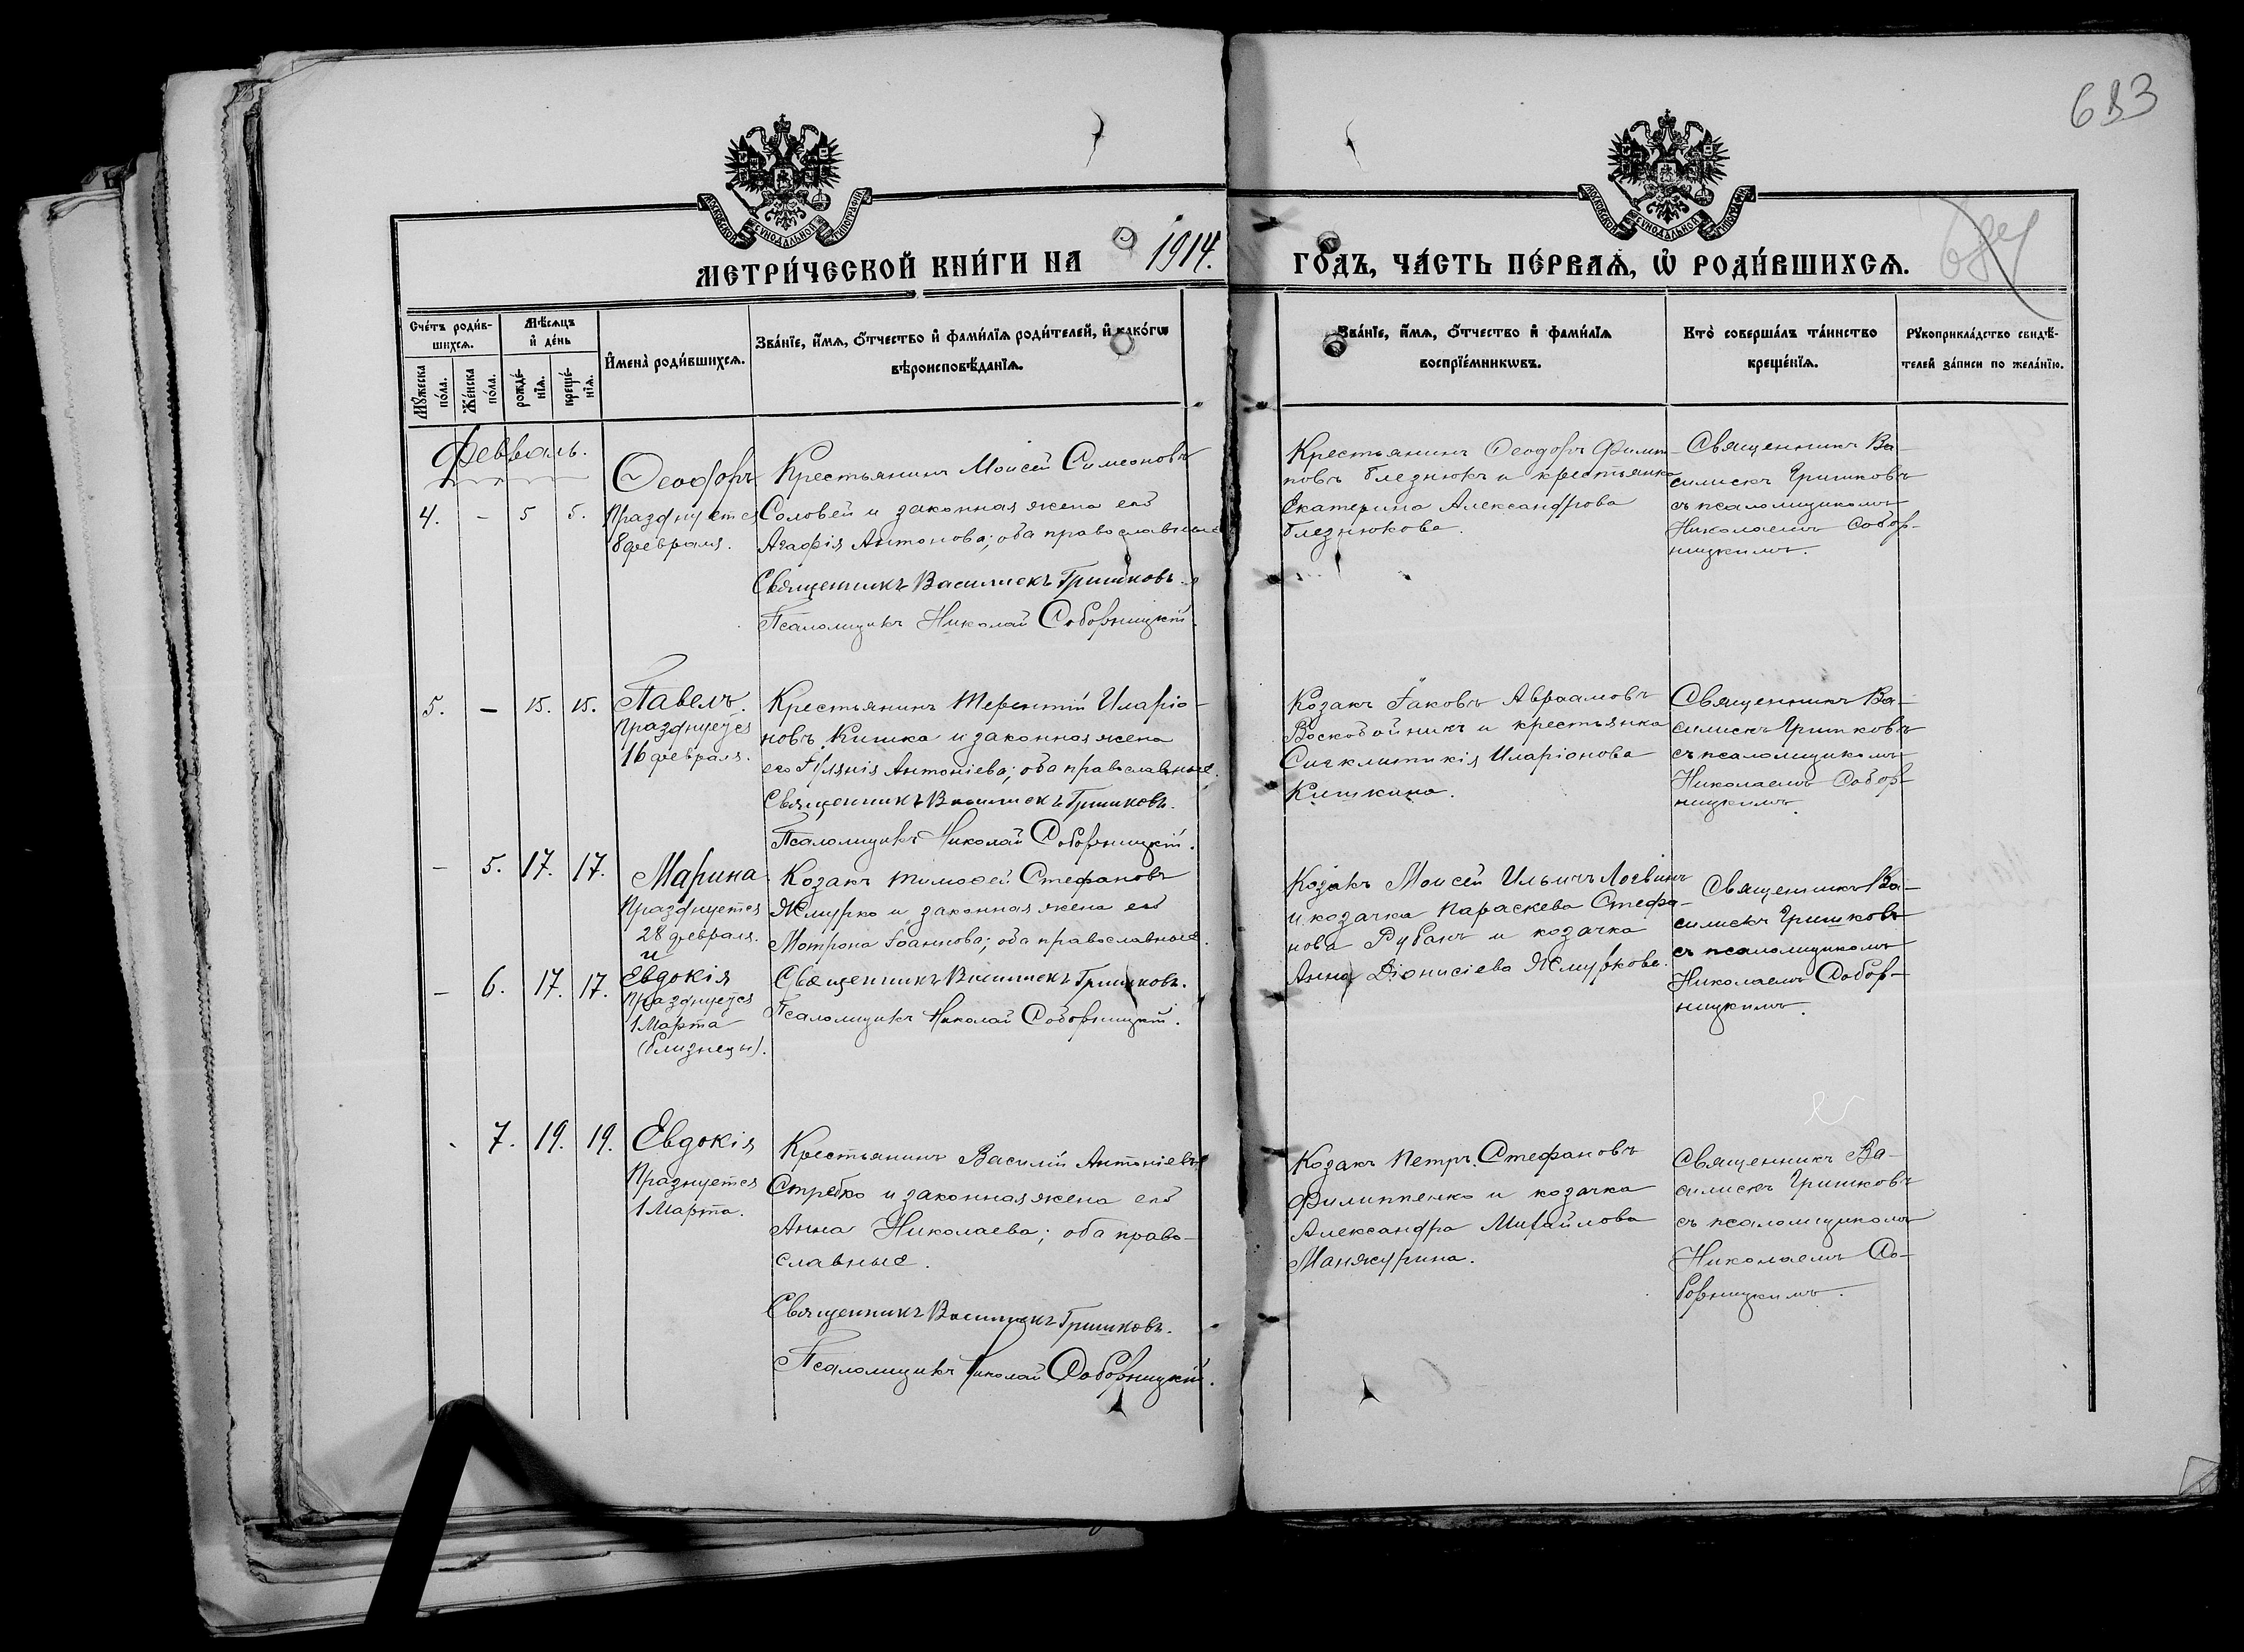 683
МОСКОВСКОЙ СѴНОДАЛЬНОЙ ТИПОГРАФІИ
МОСКОВСКОЙ СѴНОДАЛЬНОЙ ТИПОГРАФІИ
МЕТРИ́ЧЕСКОЙ КНИ́ГИ НА 1914. ГО́ДЪ, ЧА́СТЬ ПЕ́РВАѦ, Ѡ҆ РОДИ́ВШИХСѦ.
684
Сче́тъ роди́в-
шихсѧ.
Мꙋ́жеска по́ла.
Же́нска по́ла.
Мѣ́сѧцъ
и҆ де́нь
рожде́-
нїѧ.
креще́-
нїѧ.
И҆мена̀ роди́вшихсѧ.
Зва́нїе, и҆́мѧ, ѻ҆́тчество и҆ фами́лїѧ роди́телей, и҆ како́гѡ
вѣроисповѣ́данїѧ.
Зва́нїе, и҆́мѧ, ѻ҆́тчество и҆ фами́лїѧ
воспрїе́мникѡвъ.
Кто̀ соверша́лъ та́инство
креще́нїѧ.
Рꙋкоприкла́дство свидѣ́-
телей за́писи по жела́нїю.
Февраль.
4. – 5 5.
Ѳеодоръ
Празднуется
8 февраля.
Крестьянинъ Моисей Симеоновъ
Соловей и законная жена его
Агафія Антонова; оба православные
Священникъ Василискъ Гришковъ.
Псаломщикъ Николай Соборницкій.
Крестьянинъ Ѳеодоръ Филип-
повъ Блезнюкъ и крестьянка
Екатерина Александрова
Блезнюкова.
Священникъ Ва-
силискъ Гришковъ
съ псаломщикомъ
Николаемъ Собор-
ницкимъ.
5. – 15. 15.
Павелъ.
Празднуется
16 февраля.
Крестьянинъ Терентій Иларіо-
новъ Кишка и законная жена
его Антоніева; оба православные.
Священникъ Василискъ Гришковъ.
Псаломщикъ Николай Соборницкій.
Козакъ Іаковъ Авраамовъ
Воскобойникъ и крестьянка
Сигклитикія Иларіонова
Кишкина.
Священникъ Ва-
силискъ Гришковъ
съ псаломщикомъ
Николаемъ Собор-
ницкимъ.
– 5. 17. 17.
Марина
Празднуется
28 февраля.
и
– 6. 17. 17.
Евдокія
Празднуется
1 Марта
(близнецы).
Козакъ Тимоѳей Стефановъ
Жмурко и законная жена его
Мотрона Іоаннова; оба православные.
Священникъ Василискъ Гришковъ.
Псаломщикъ Николай Соборницкій.
Козакъ Моисей Ильичъ Логвинъ
и козачка Параскева Стефа-
нова Рубанъ и козачка
Анна Діонисіева Жмуркова.
Священникъ Ва-
силискъ Гришковъ
съ псаломщикомъ
Николаемъ Собор-
ницкимъ.
7. 19. 19.
Евдокія
Празнуется
1 Марта.
Крестьянинъ Василій Антоніевъ
Стребко и законная жена его
Анна Николаева; оба право-
славные.
Священникъ Василискъ Гришковъ.
Псаломщикъ Николай Соборницкій.
Козакъ Петръ Стефановъ
Филиппенко и козачка
Александра Михайлова
Манжурина.
Священникъ Ва-
силискъ Гришковъ
съ псаломщикомъ
Николаемъ Со-
борницкимъ.